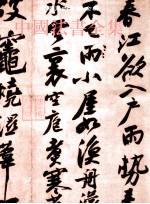 春江欲入戶雨勢來
不雨小屋如漁舟濛
水雲裏空庖煮寒菜
破竈燒濕葦
中國法書全集